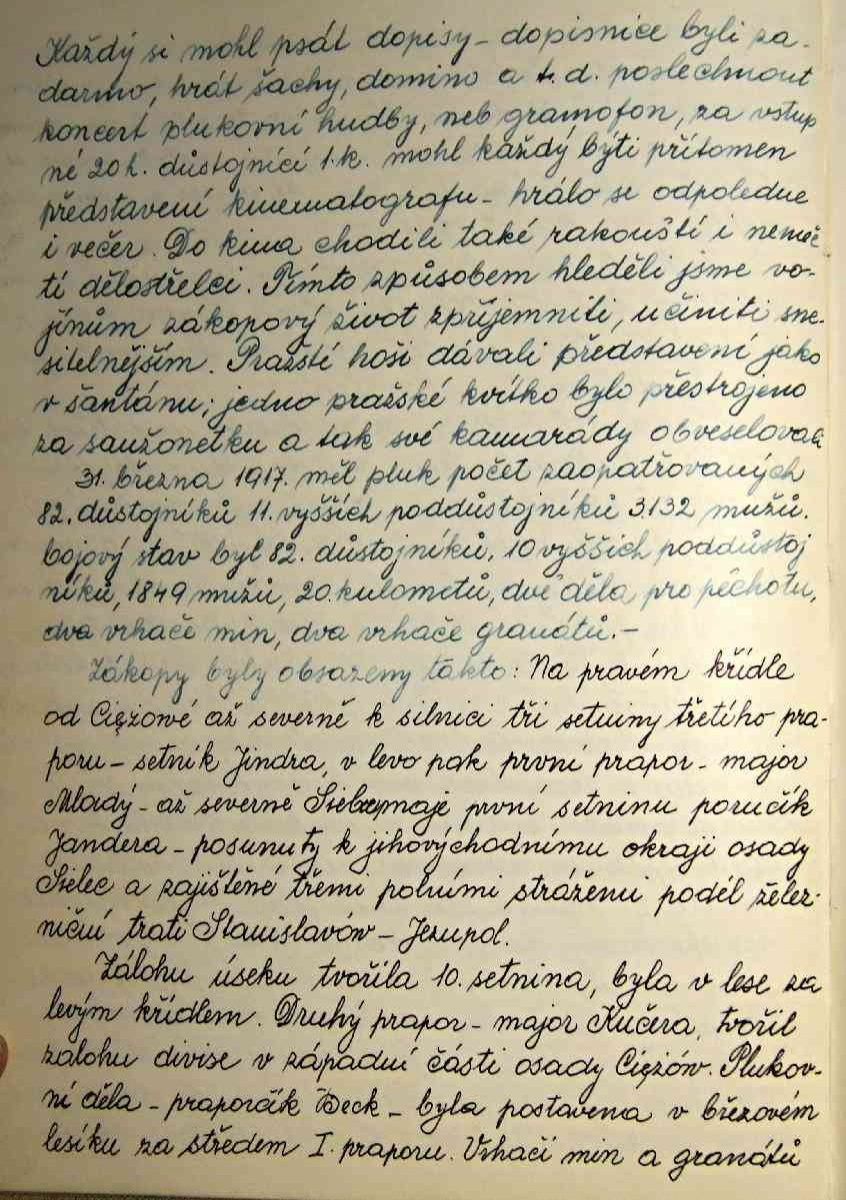 Každý si mohl psát dopisy – dopisnice byli za-
darmo, hrát šachy, domino a t. d. poslechnout
koncert plukovní hudby, neb gramofon, za vstup
né 20 h. důstojníci 1. k. mohl každý býti přítomen
představení kinematografu – hrálo se odpoledne
i večer. Do kina chodili také rakouští i němeč-
tí dělostřelci. Tímto způsobem hleděli jsme vo-
jínům zákopový život zpříjemniti, učiniti sne-
sitelnějším. Pražstí hoši dávali představení jako
v šantánu; jedno pražské kvítko bylo přestrojeno
za saužonetku a tak své kamarády obveselovali
31. března 1917. měl pluk počet zaopatřovaných
82. důstojníků 11. vyšších poddůstojníků 3132 mužů.
bojový stav byl 82. důstojníků, 10 vyšších poddůstoj
níků, 1849 mužů, 20. kulometů, dvě děla pro pěchotu,
dva vrhače min, dva vrhače granátů. –
Zákopy byly obsazeny takto: Na pravém křídle
od Ciężowé až severně k silnici tři setniny třetího pra-
poru – setník Jindra, v levo pak první prapor – major
Mladý – až severně Sielce, maje první setninu poručík
Jandera – posunuty k jihovýchodnímu okraji osady
Sielec a zajištěné třemi polními strážemi podél želez-
niční trati Stanislavów – Jezupol.
Zálohu úseku tvořila 10. setnina, byla v lese za
levým křídlem. Druhý prapor – major Kučera, tvořil
zálohu divise v západní části osady Ciężów. Plukov-
ní děla – praporčík Beck – byla postavena v březovém
lesíku za středem I. praporu. Vrhači min a granátů